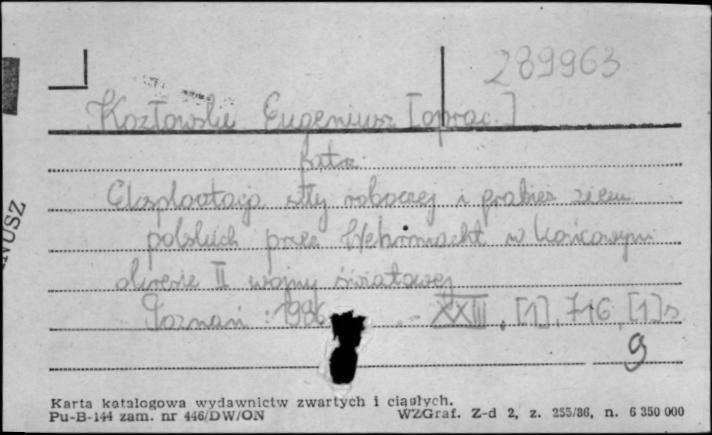 289963
Kozłowski Eugeniusz [oprac.]
patrz
Eksploatacja siły roboczej i grabież ziem
polskich przez Wehrmacht w końcowym
okresie II wojny światowej
Poznań : 1986 .- XXIII, [1], 716, [1] s.
9
NUSZ
Karta katalogowa wydawnictw zwartych i ciągłych.
Pu-B-144 zam. nr 446/DW/ON WZGraf. Z-d 2, z. 255/86, n. 6 350 000